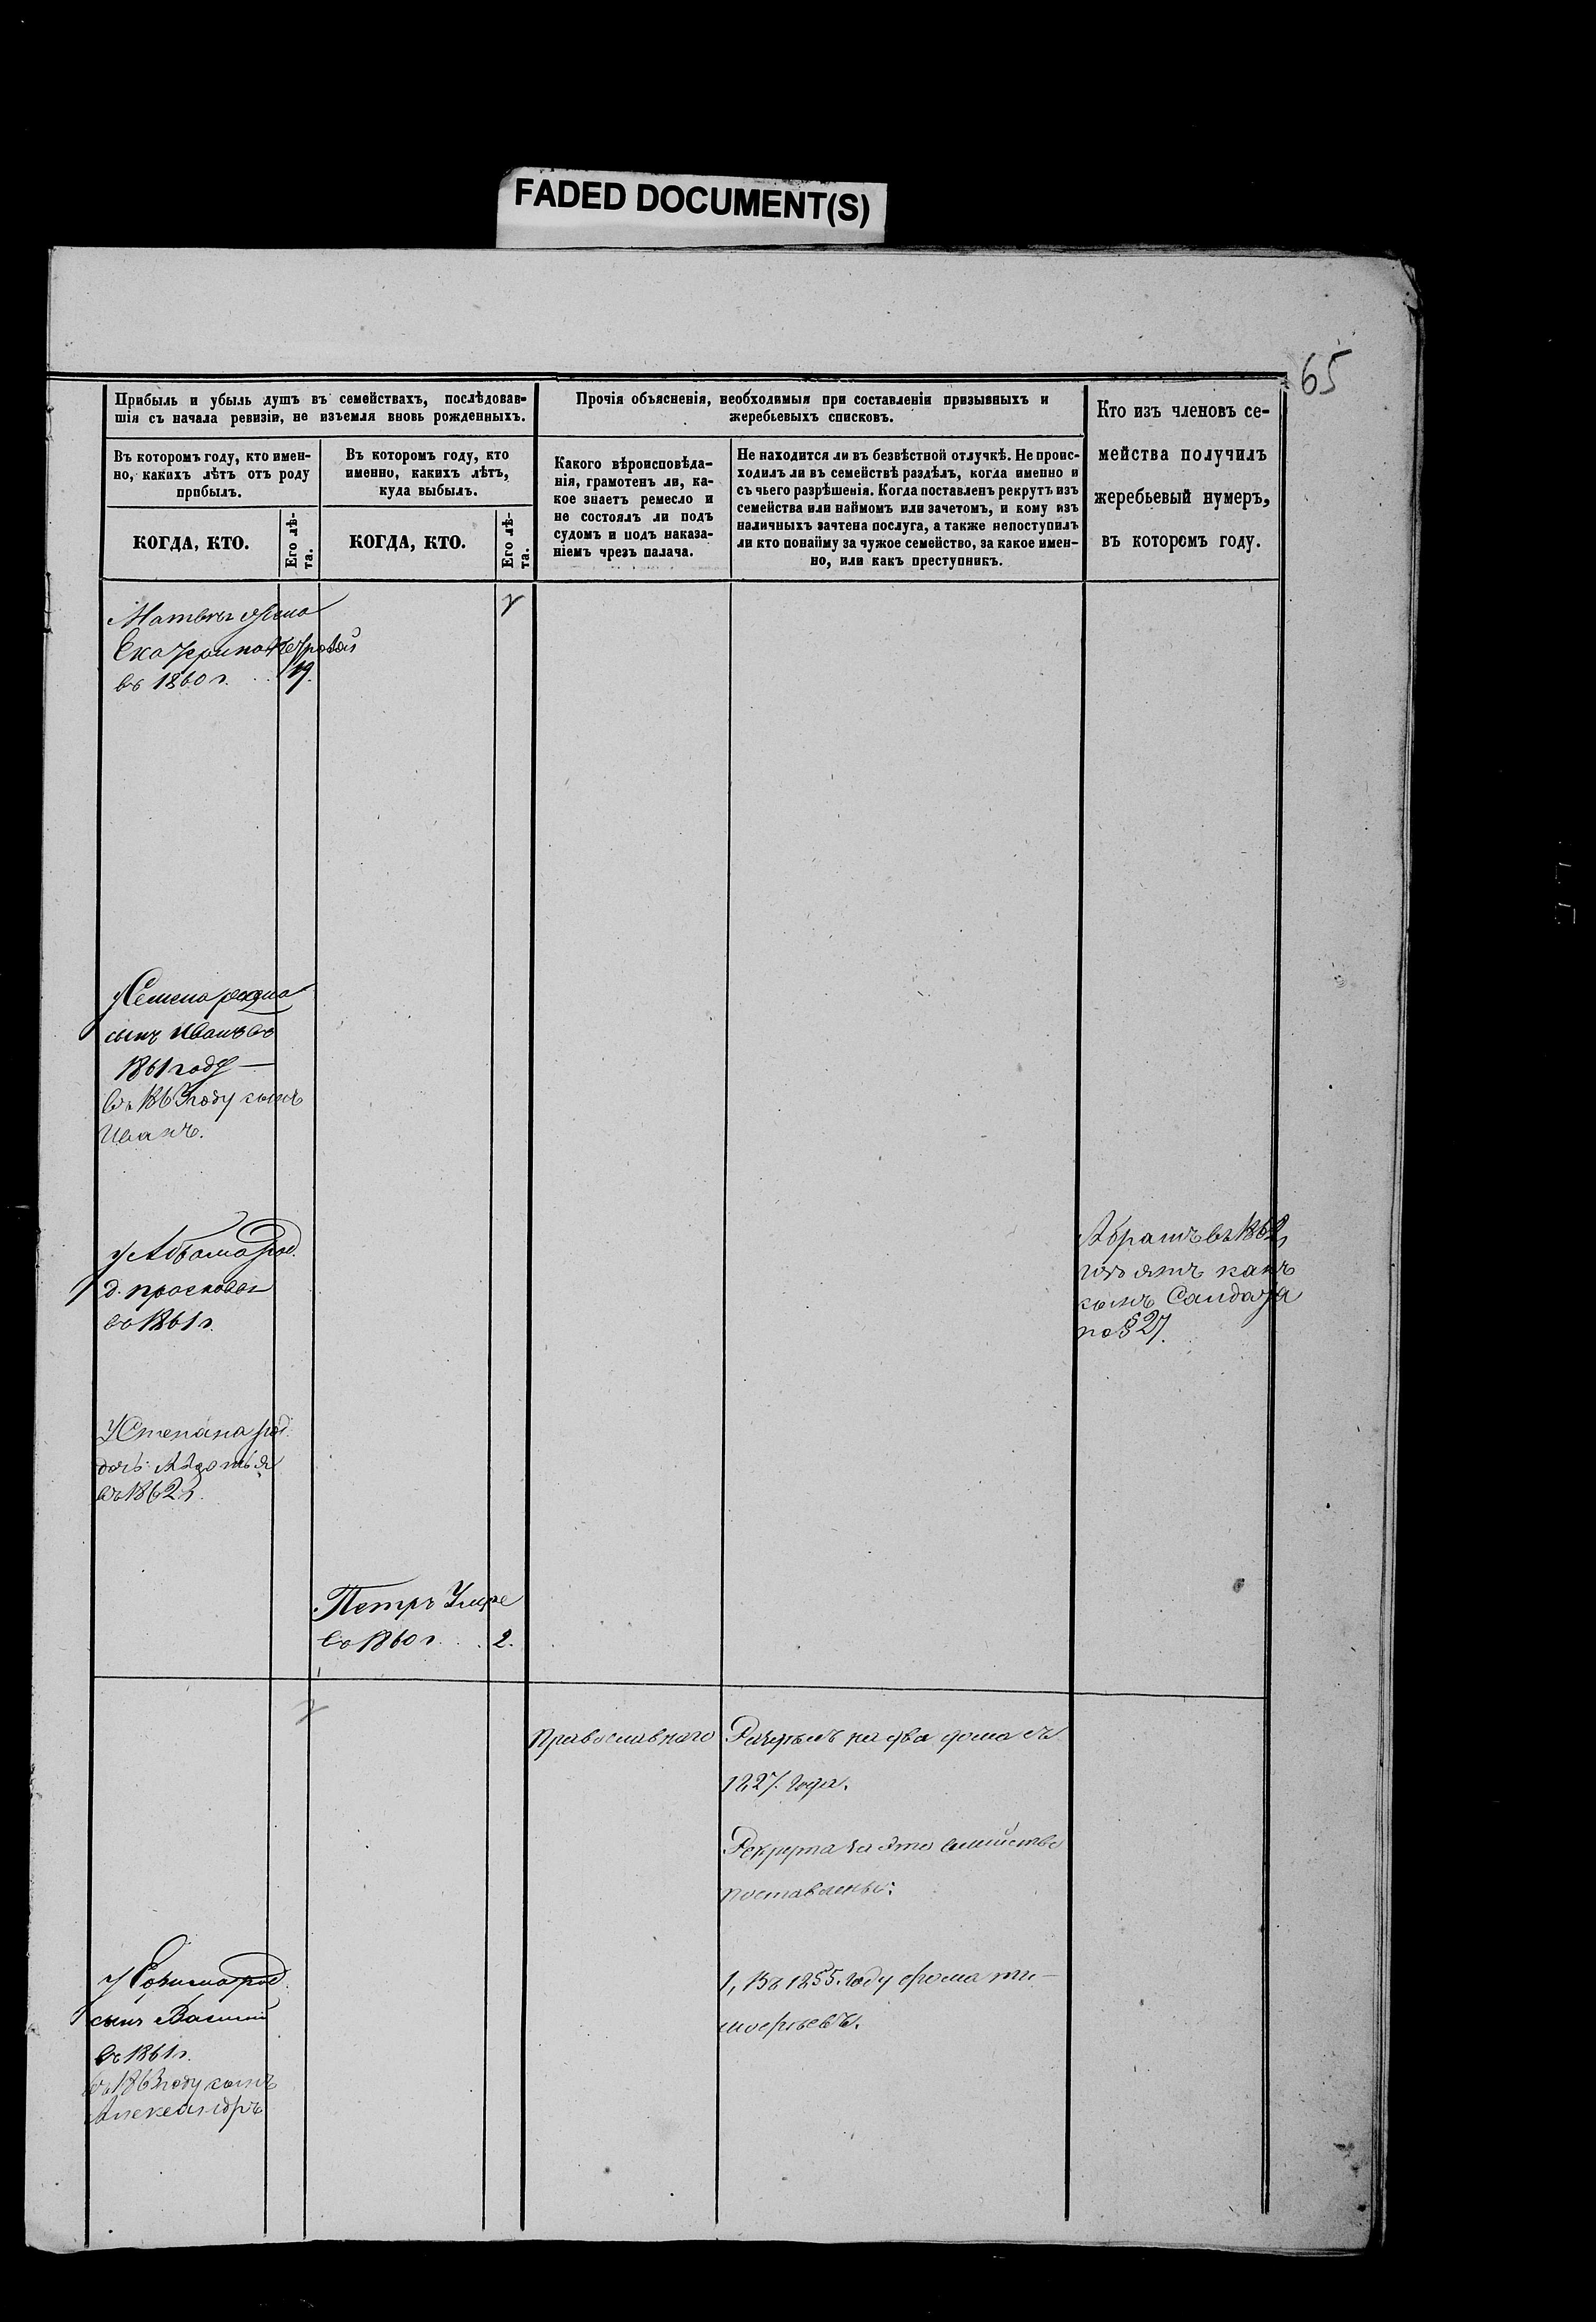 FADED DOCUMENT(S)
65
Прибыль и убыль душъ въ семействахъ, послѣдовав-
шія съ начала ревизіи, не изъемля вновь рожденныхъ.
Въ которомъ году, кто имен-
но, какихъ лѣтъ отъ роду
прибылъ.
КОГДА, КТО.
Его лѣ-
та.
Въ которомъ году, кто
именно, какихъ лѣтъ,
куда выбылъ.
КОГДА, КТО.
Его лѣ-
та.
Прочія объясненія, необходимыя при составленіи призывныхъ и
жеребьевыхъ списковъ.
Какого вѣроисповѣда-
нія, грамотенъ ли, ка-
кое знаетъ ремесло и
не состоялъ ли подъ
судомъ и подъ наказа-
ніемъ чрезъ палача.
Не находится ли въ безвѣстной отлучкѣ. Не проис-
ходилъ ли въ семействѣ раздѣлъ, когда именно и
съ чьего разрѣшенія. Когда поставленъ рекрутъ изъ
семейства или наймомъ или зачетомъ, и кому изъ
наличныхъ зачтена послуга, а также непоступилъ
ли кто понайму за чужое семейство, за какое имен-
но, или какъ преступникъ.
Кто изъ членовъ се-
мейства получилъ
жеребьевый нумеръ,
въ которомъ году.
Матвѣя жена
Екатерина Петрова
въ 1860 г. 19.
У Семена
сынъ Иванъ въ
1861 году —
Въ 1863 году сынъ
Иванъ.
у Абрама род.
д. просковья
въ 1861 г.
Абрамъ въ 1862
какъ
сынъ Солдата
по § 27.
У Степана род.
дочь Авдотья
въ 1862 г.
Петръ Умре
въ 1860 г. 2.
православнаго
на два дома съ
1827. года.
Рекрута за это семѣйство
поставлены:
1, Въ 1855. году Фома ти-
моѳѣевъ.
У Ефима род.
сынъ Василий
въ 1861 г.
Въ 1863 году сынъ
Александръ